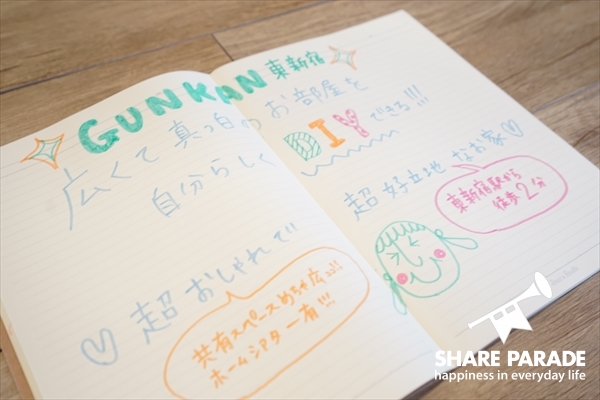 GUNKAN東新宿
広くて真っ白なお部屋を
自分らしくDIYできる!!!
超おしゃれで
超好立地なお家♡
東新宿駅から
徒歩2分
共有スペースめちゃ広っ!!
ホームシアター有!!!
SHARE PARADE
happiness in everyday life